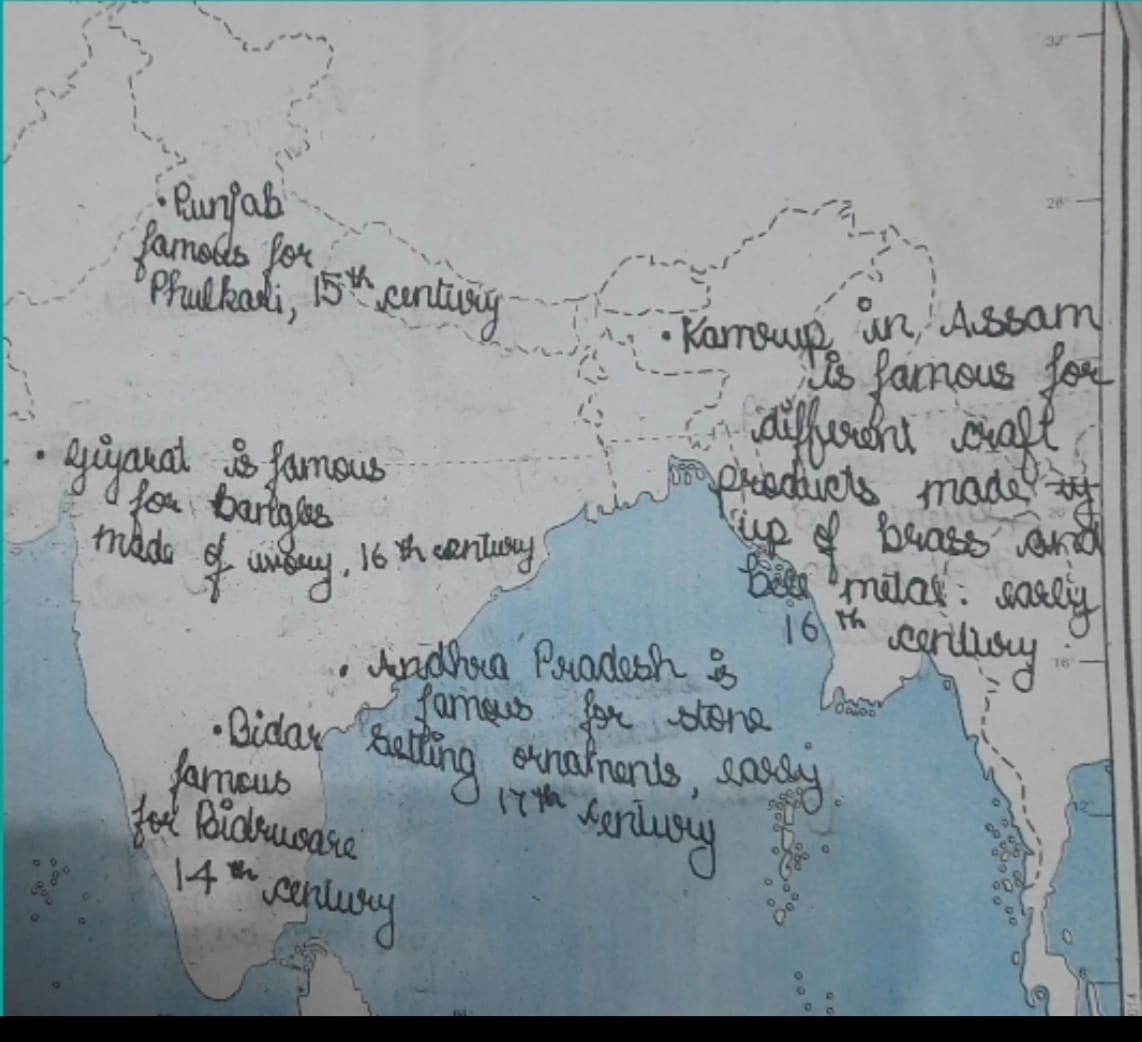 32°
28°
• Punjab
famous for
Phulkari, 15th century
• Kamrup in Assam
is famous for
different craft
products made by
up of brass and
bell metal. early
16th century
• Gujarat is famous
for bangles
made of ivory, 16th century
20°
16°
• Andhra Pradesh is
famous for stone
setting ornatments, early
17th century
• Bidar
famous
for Bidruware
14th century
12°
8°